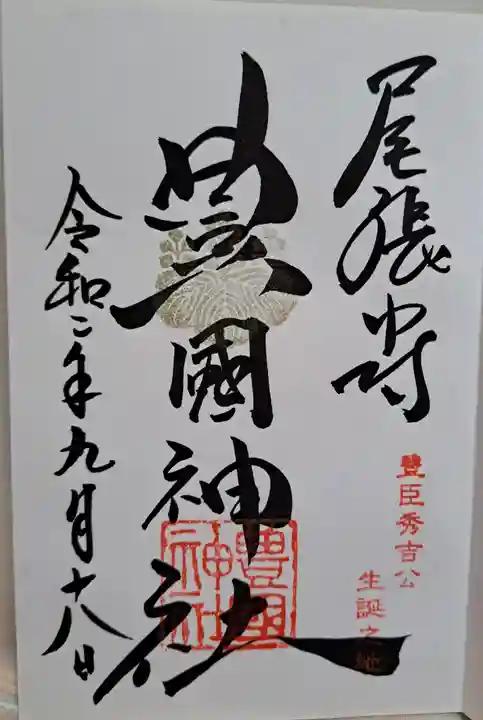 尾張中村
豊臣秀吉公
生誕之地
豊國神社
豊國神社
令和二年九月十八日